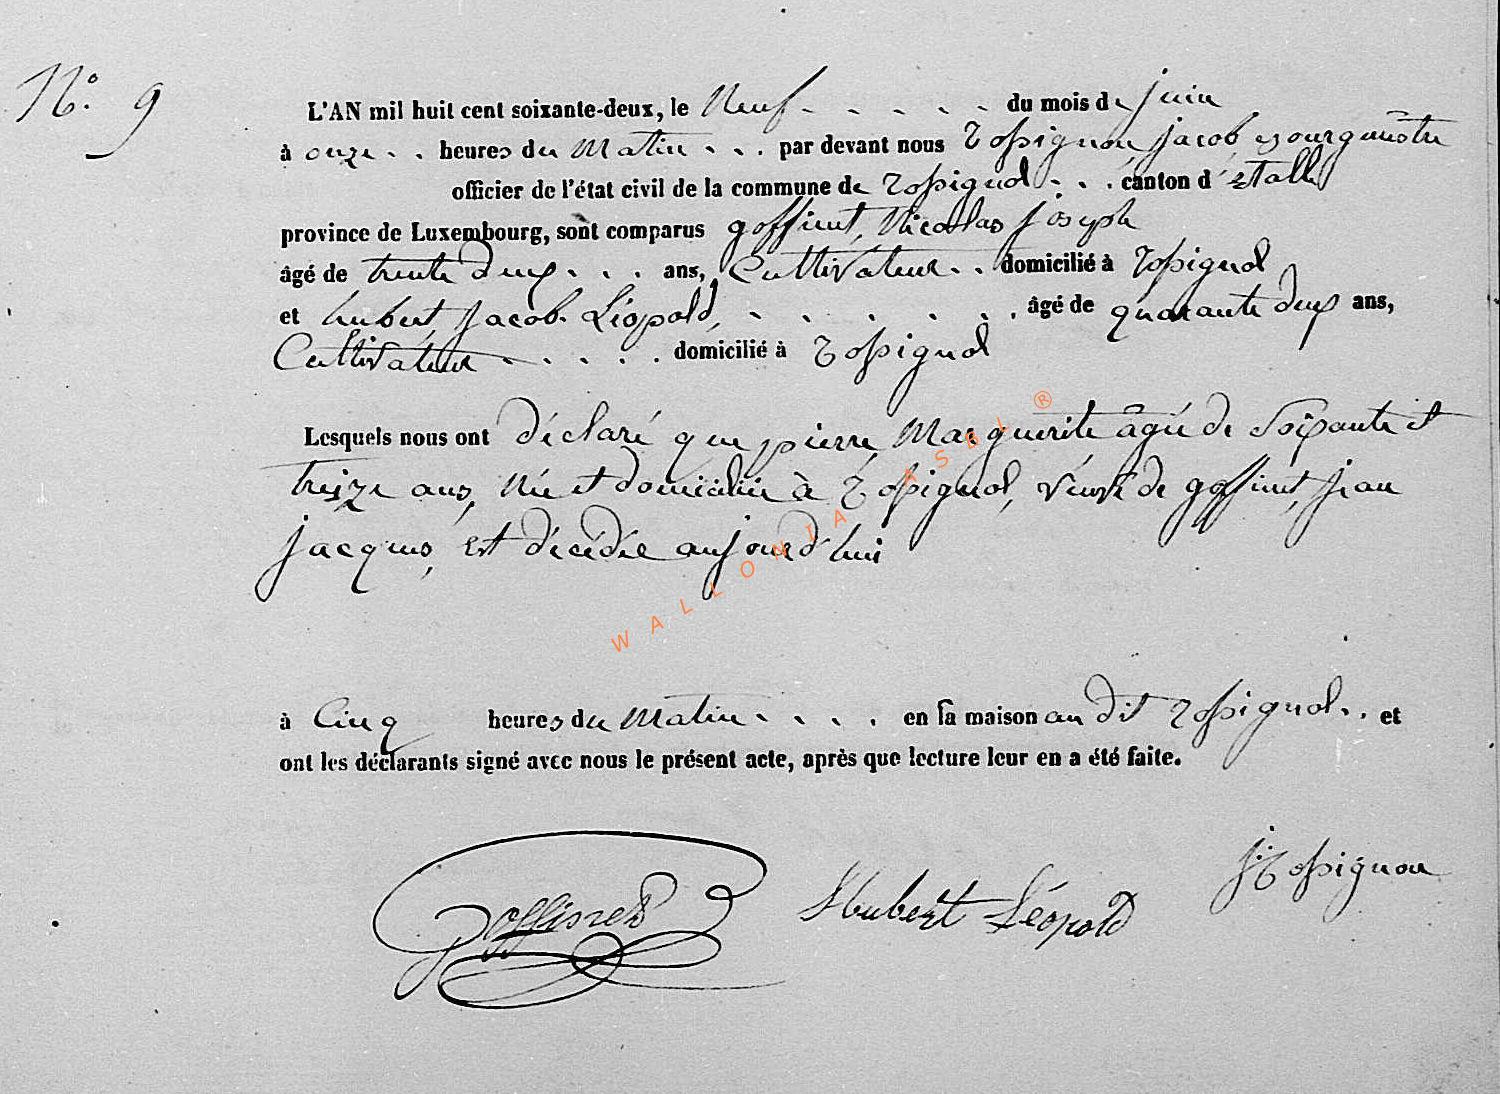 N° 9
L'AN mil huit cent soixante-deux, le Neuf - - - - - du mois de juin
à onze - - heures du Matin - - - par devant nous Rossignon, jacob, Bourgmestre
officier de l'état civil de la commune de Rossignol - - - canton d'étalle
province de Luxembourg, sont comparus goffinet, Nicolas joseph
âgé de trente deux - - - ans, Cultivateur - - domicilié à Rossignol
et hubert, jacob Léopold, - - - - - - âgé de quarante deux ans,
Cultivateur - - - - - domicilié à Rossignol
Lesquels nous ont déclaré que pierre, Marguerite âgée de Soixante et
treize ans, Née et domiciliée à Rossignol, veuve de goffinet, jean
jacques, est décédée aujourd'hui
à Cinq heures du Matin - - - - en sa maison au dit Rossignol - - et
ont les déclarants signé avec nous le présent acte, après que lecture leur en a été faite.
Goffinet Hubert Léopold J: Rossignon
WALLONIA ASBL ®